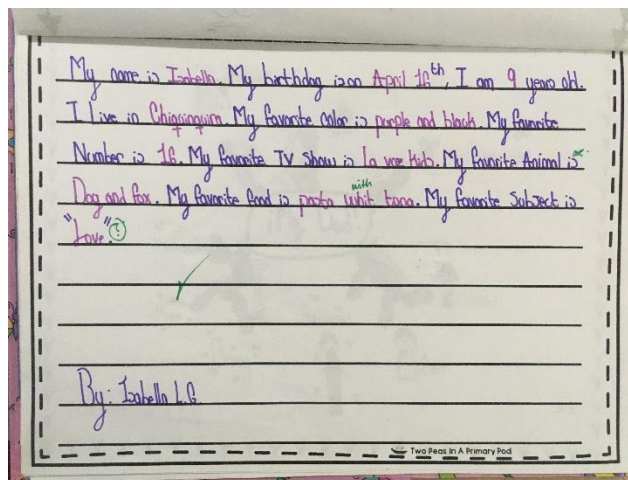 My name is Isabella. My birthday is on April 16th, I am 9 years old.
I live in Chiquinquira. My favorite color is purple and black. My favorite
Number is 16. My favorite TV Show is la voz kids. My favorite Animal is are
Dog and fox. My favorite food is pasta whit tuna. My favorite Subject is
with
"Love". ?
By: Isabella L.G
Two Peas In A Primary Pod